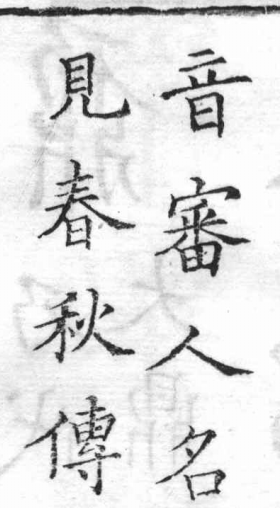 音審人名
見春秋傳